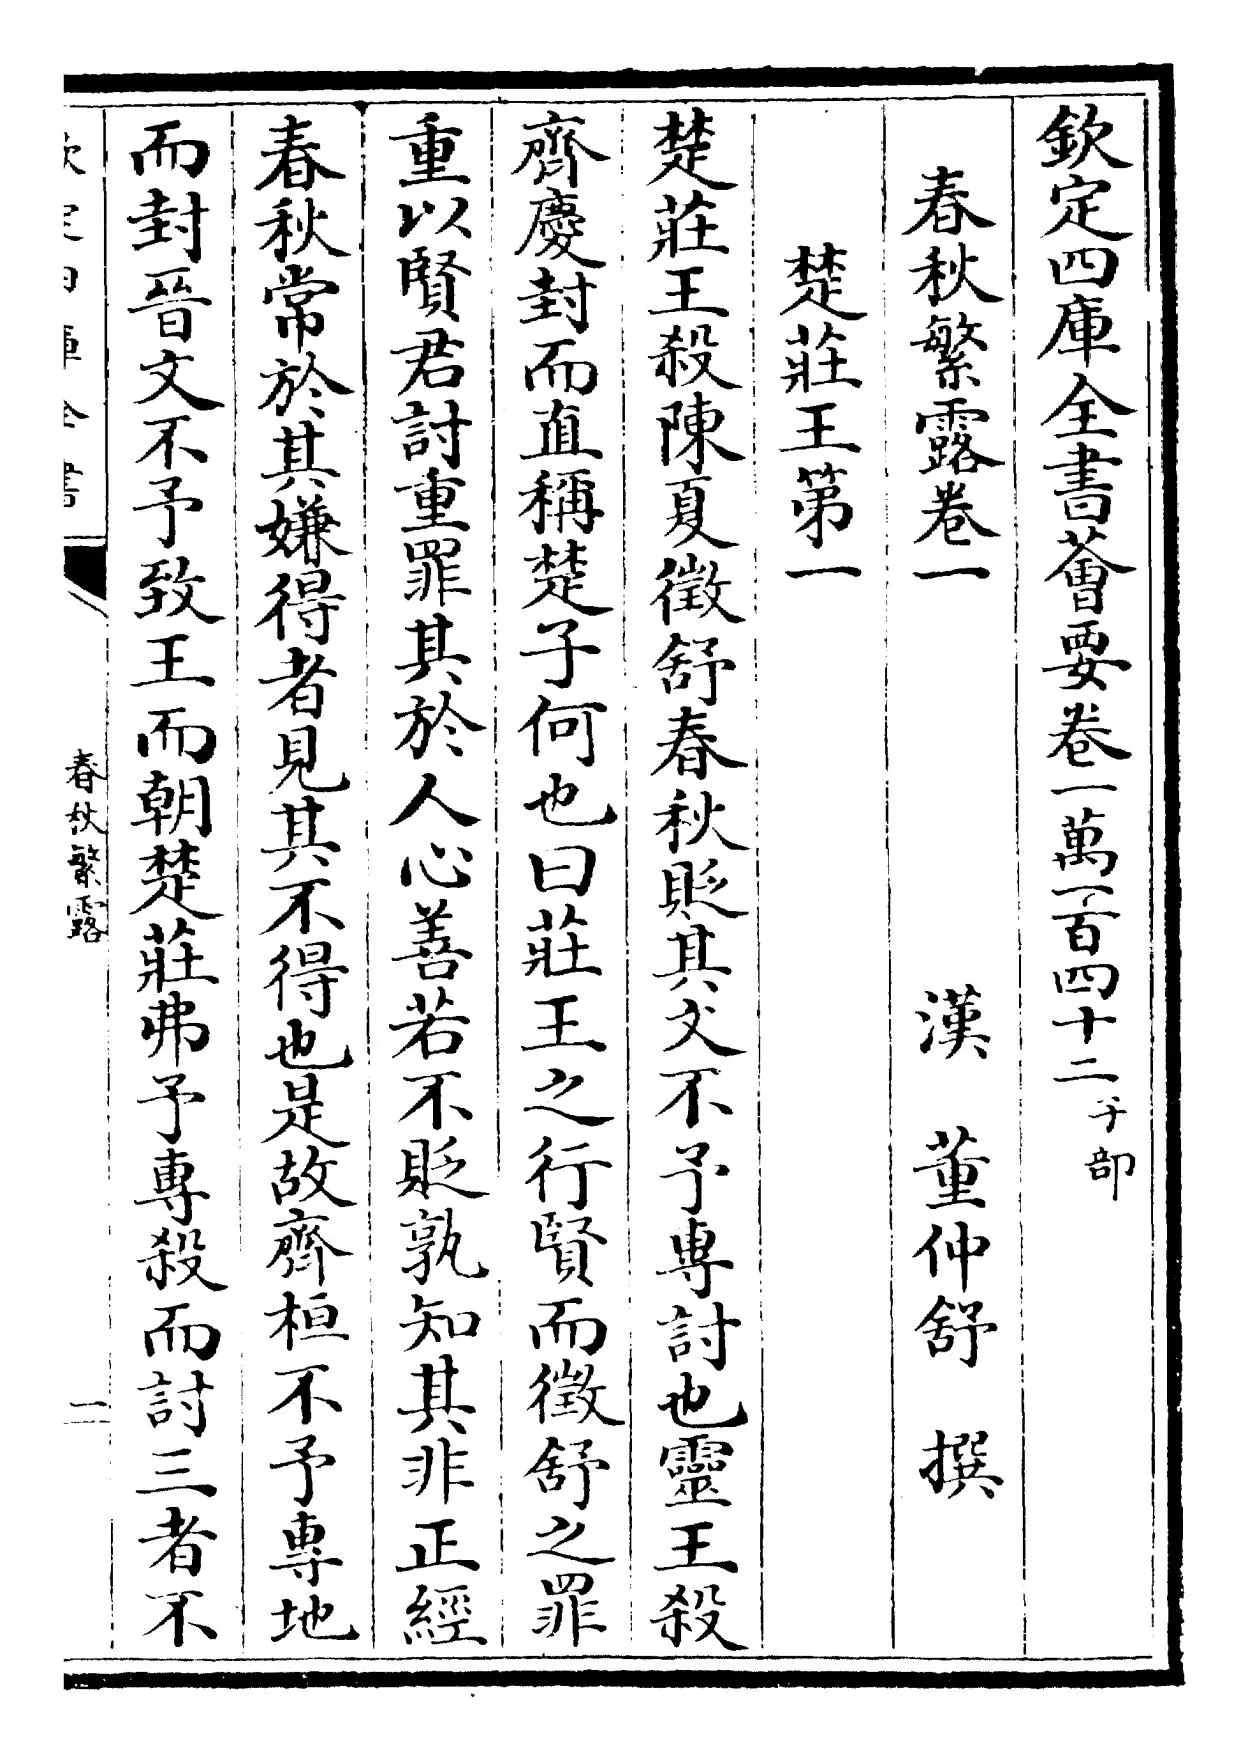 欽定四庫全書薈要卷一萬一百四十二子部
春秋繁露卷一
漢 董仲舒 撰
楚莊王第一
楚莊王殺陳夏徵舒春秋貶其文不予專討也靈王殺
齊慶封而直稱楚子何也曰莊王之行賢而徵舒之罪
重以賢君討重罪其於人心善若不貶孰知其非正經
春秋常於其嫌得者見其不得也是故齊桓不予專地
而封晉文不予致王而朝楚莊弗予專殺而討三者不
欽定四庫全書
春秋繁露
一